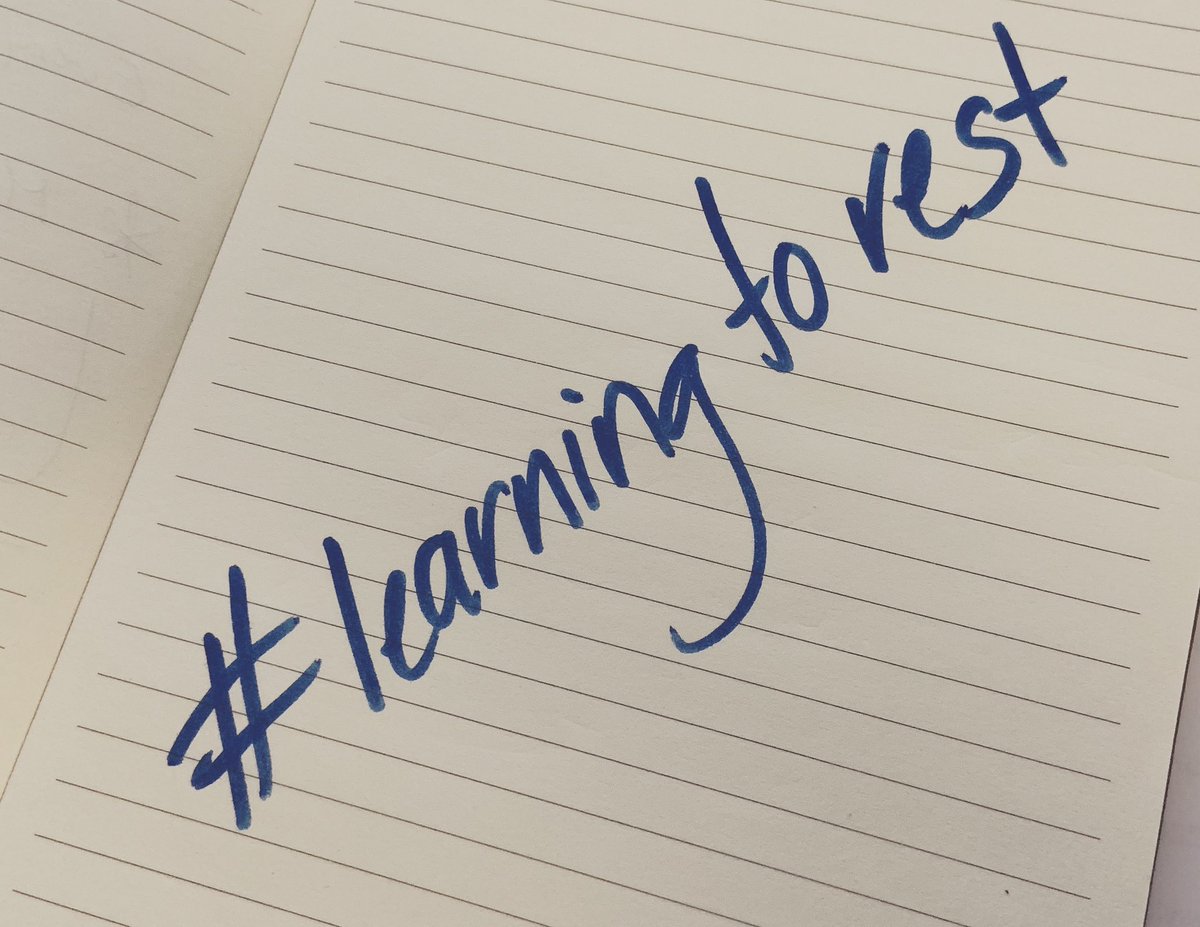 #learning to rest